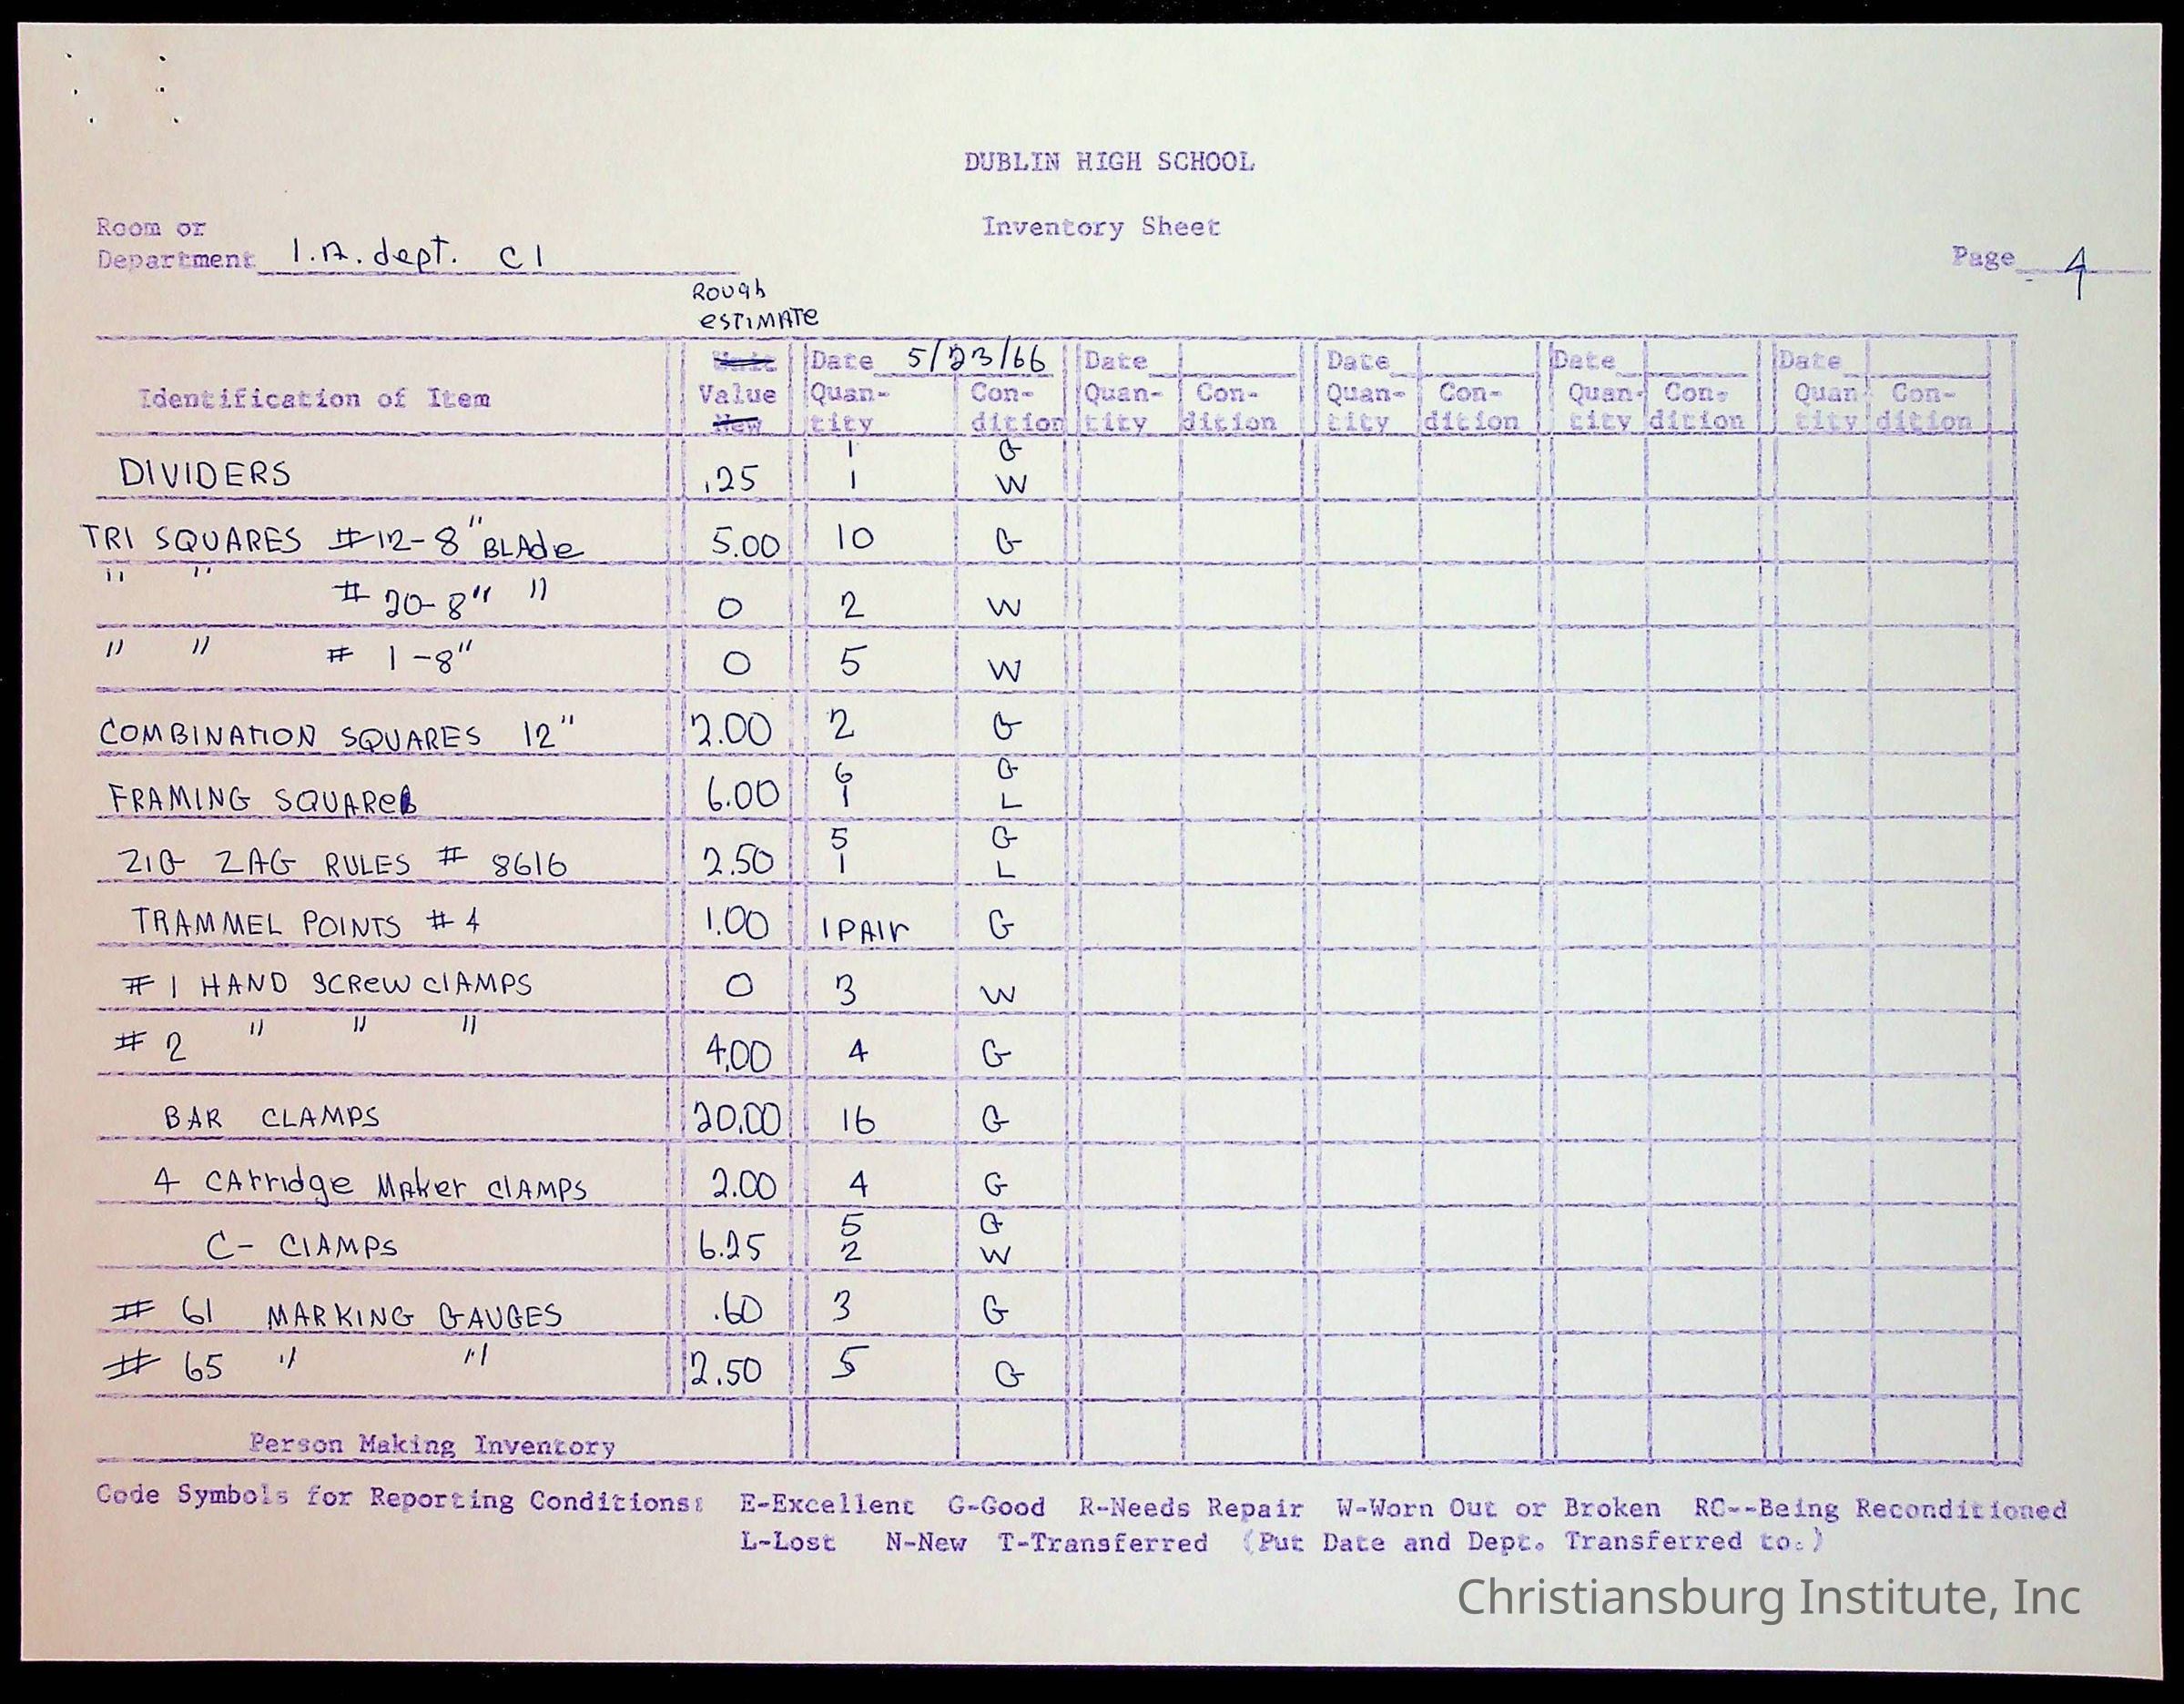 DUBLIN HIGH SCHOOL
Inventory Sheet
Room or
Department I.A. dept. CI
Page 4
Rough
estimate
Identification of Item Unit Value New Date 5/23/66 Quan-tity Con-dition Date Quan-tity Con-dition Date Quan-tity Con-dition Date Quan-tity Con-dition Date Quan-tity Con-dition
DIVIDERS .25 1 G
1 W
TRI SQUARES #12-8" BLAde 5.00 10 G
" " # 20-8" " 0 2 W
" " # 1-8" 0 5 W
COMBINATION SQUARES 12" 2.00 2 G
FRAMING SQUARES 6.00 6 G
1 L
ZIG ZAG RULES # 8616 2.50 5 G
1 L
TRAMMEL POINTS # 4 1.00 1 PAIr G
#1 HAND SCRew ClAMPS 0 3 W
# 2 " " " 4.00 4 G
BAR CLAMPS 20.00 16 G
4 CArridge Maker ClAMPS 2.00 4 G
C- ClAMPS 6.25 5 G
2 W
# 61 MARKING GAUGES .60 3 G
# 65 " " 2.50 5 G
Person Making Inventory
Code Symbols for Reporting Conditions: E-Excellent G-Good R-Needs Repair W-Worn Out or Broken RC--Being Reconditioned
L-Lost N-New T-Transferred (Put Date and Dept. Transferred to.)
Christiansburg Institute, Inc